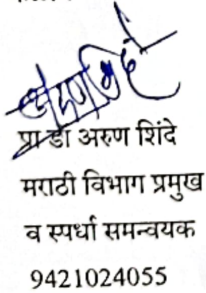 प्रा डॉ अरुण शिंदे
मराठी विभाग प्रमुख
व स्पर्धा समन्वयक
9421024055